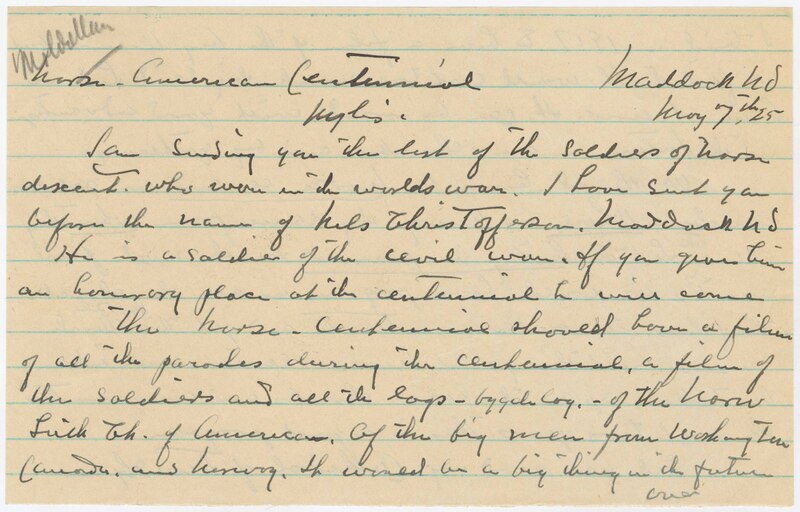 Norse-American Centennial Maddock ND
Mpls. May 7th, 25
I am sending you the list of the soldiers of Norse
descent. who were in the worlds war. I have sent you
before the name of Nels Christofferson, Maddock ND
He is a soldier of the civil war. If you given him
an honorary place at the centennial he will come
The Norse-Centennial should have a film
of all the parades during the centennial, a film of
the soldiers and all the lags - bygdelag, - of the Norw
Luth Ch. of American. Of the big men from Washington
Canada. and Norway. It would be a big thing in the future
over